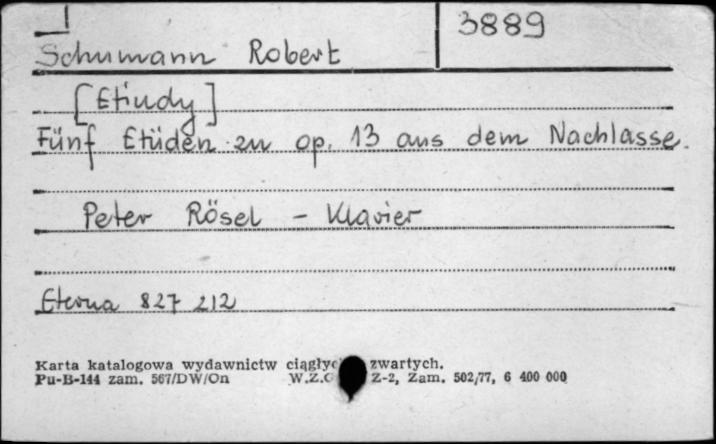 3889
Schumann Robert
[Etiudy]
Fünf Etüden zu op. 13 aus dem Nachlasse.
Peter Rösel - Klavier
Eterna 827 212
Karta katalogowa wydawnictw zwartych.
Pu-B-144 zam. 567/DW/On Z-2, Zam. 502/77, 6 400 000